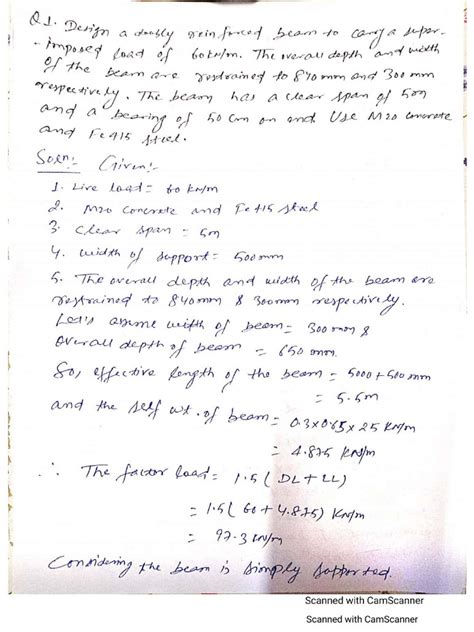 Q1. Design a doubly reinforced beam to carry a super-
-imposed load of 60 kN/m. The overall depth and width
of the beam are restrained to 840 mm and 300 mm
respectively. The beam has a clear span of 5m
and a bearing of 50 cm on end. Use M20 concrete
and Fe 415 steel.
Soln:- Given:-
1. Live load = 60 kN/m
2. M20 concrete and Fe 415 steel
3. Clear span = 5m
4. width of support = 500 mm
5. The overall depth and width of the beam are
restrained to 840 mm & 300 mm respectively.
Let's assume width of beam = 300 mm &
Overall depth of beam = 650 mm.
So, effective length of the beam = 5000 + 500 mm
= 5.5m
and the self wt. of beam = 0.3x0.65x25 KN/m
= 4.875 KN/m
∴ The factor load = 1.5 ( DL + LL)
= 1.5 ( 60 + 4.875) KN/m
= 97.3 kN/m
Considering the beam is simply supported.
Scanned with CamScanner
Scanned with CamScanner